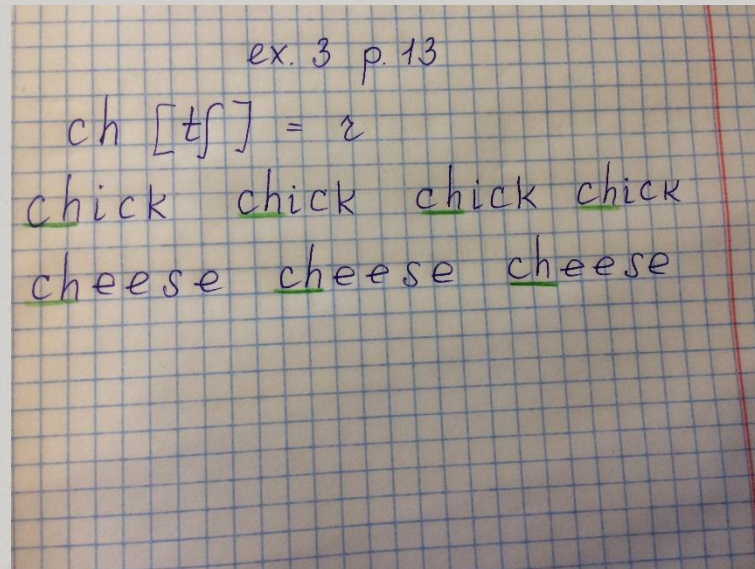 ex. 3 p. 13
ch [tʃ] = ч
chick chick chick chick
cheese cheese cheese